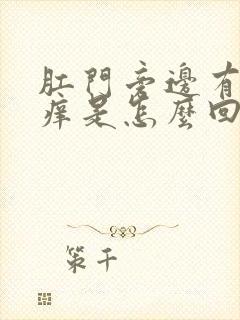 肛門旁邊有
癢是怎麼回
策千